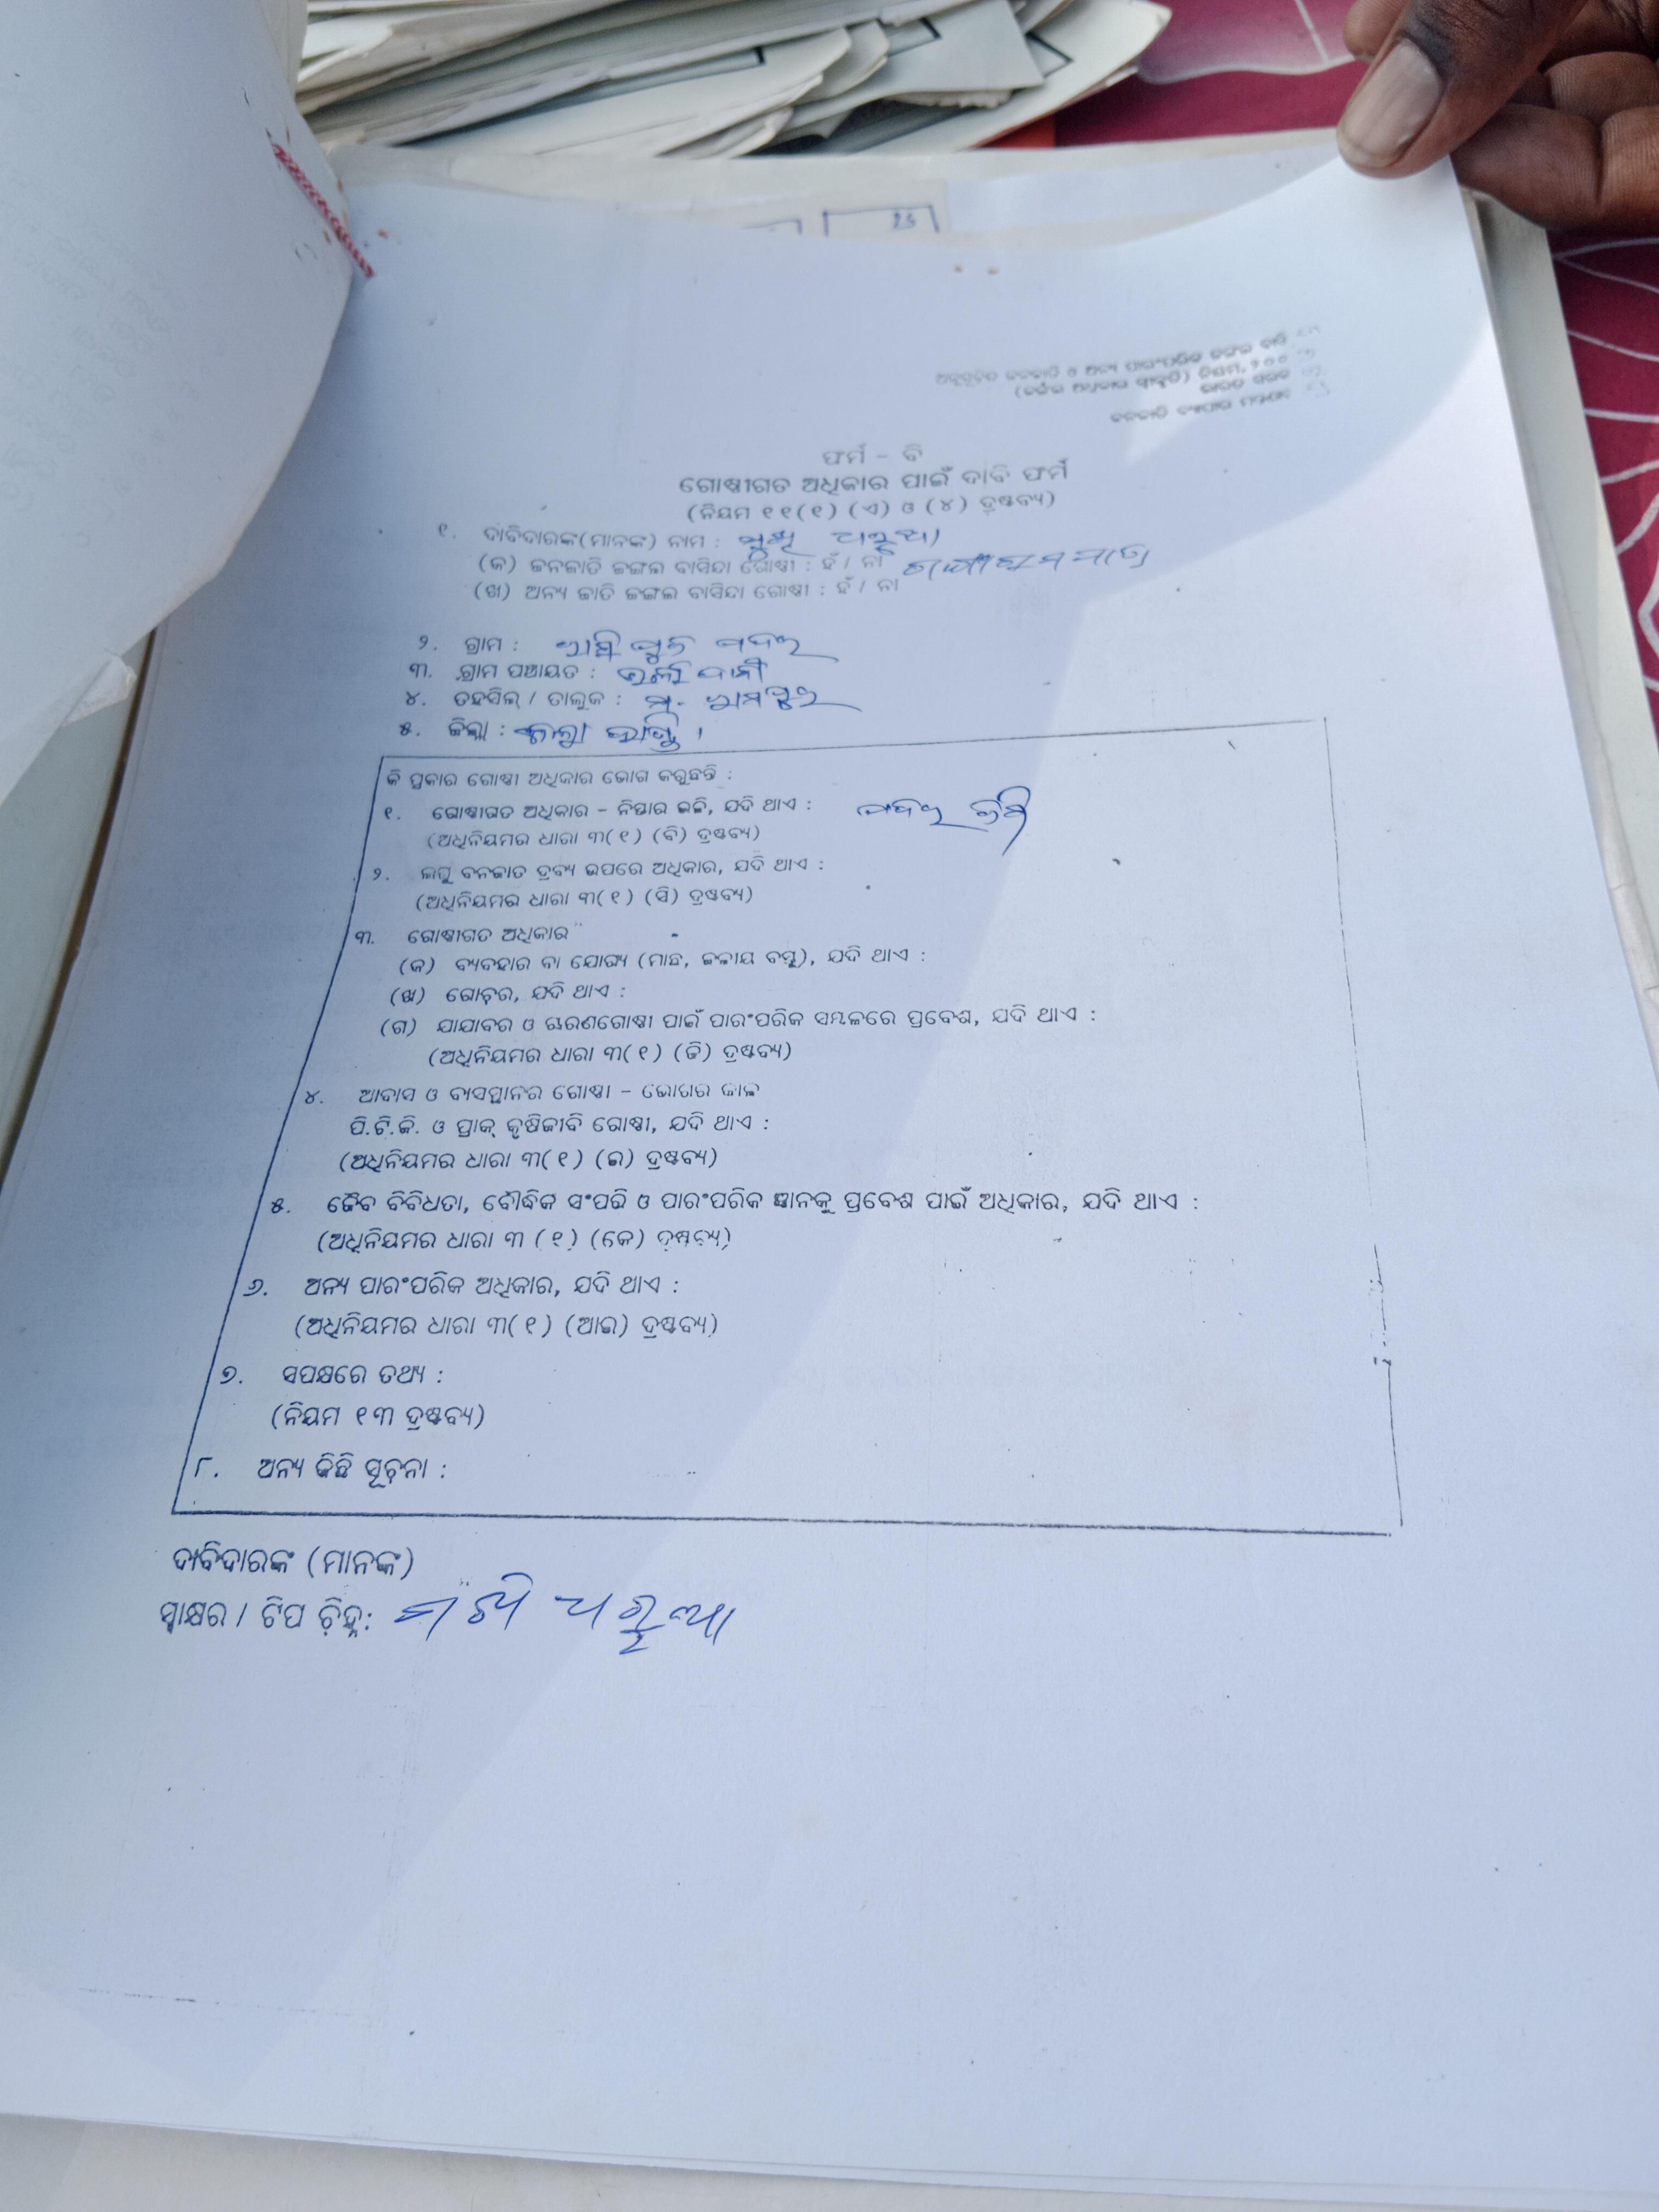 25
ଅନୁସୂଚିତ ଜନଜାତି ଓ ଅନ୍ୟ ପାରଂପରିକ ଜଙ୍ଗଲ ବାସି
(ଜଙ୍ଗଲ ଅଧିକାର ସ୍ୱୀକୃତି) ନିୟମ, ୨୦୦
ଭାରତ ସରକ
ଜନଜାତି ବ୍ୟାପାର ମନ୍ତ୍ରଣା
ଫର୍ମ - ବି
ଗୋଷ୍ଠୀଗତ ଅଧିକାର ପାଇଁ ଦାବି ଫର୍ମ
(ନିୟମ ୧୧(୧) (ଏ) ଓ (୪) ଦ୍ରଷ୍ଟବ୍ୟ)
୧. ଦାବିଦାରଙ୍କ(ମାନଙ୍କ) ନାମ :
(କ) ଜନଜାତି ଜଙ୍ଗଲ ବାସିନ୍ଦା ଗୋଷ୍ଠୀ : ହଁ / ନା
(ଖ) ଅନ୍ୟ ଜାତି ଜଙ୍ଗଲ ବାସିନ୍ଦା ଗୋଷ୍ଠୀ : ହଁ / ନା
୨. ଗ୍ରାମ :
୩. ଗ୍ରାମ ପଞ୍ଚାୟତ :
୪. ତହସିଲ୍ / ତାଲୁକ : ମ. ରାମପୁର
୫. ଜିଲ୍ଲା : କଳାହାଣ୍ଡି ।
କି ପ୍ରକାର ଗୋଷ୍ଠୀ ଅଧିକାର ଭୋଗ କରୁଛନ୍ତି :
୧. ଗୋଷ୍ଠୀଗତ ଅଧିକାର - ନିସ୍ତାର ଭଳି, ଯଦି ଥାଏ :
(ଅଧିନିୟମର ଧାରା ୩(୧) (ବି) ଦ୍ରଷ୍ଟବ୍ୟ)
୨. ଲଘୁ ବନଜାତ ଦ୍ରବ୍ୟ ଉପରେ ଅଧିକାର, ଯଦି ଥାଏ :
(ଅଧିନିୟମର ଧାରା ୩(୧) (ସି) ଦ୍ରଷ୍ଟବ୍ୟ)
୩. ଗୋଷ୍ଠୀଗତ ଅଧିକାର
(କ) ବ୍ୟବହାର ବା ଯୋଗ୍ୟ (ମାଛ, ଜଳୀୟ ବସ୍ତୁ), ଯଦି ଥାଏ :
(ଖ) ଗୋଚର, ଯଦି ଥାଏ :
(ଗ) ଯାଯାବର ଓ ଚାରଣଗୋଷ୍ଠୀ ପାଇଁ ପାରଂପରିକ ସମ୍ବଳରେ ପ୍ରବେଶ, ଯଦି ଥାଏ :
(ଅଧିନିୟମର ଧାରା ୩(୧) (ଡି) ଦ୍ରଷ୍ଟବ୍ୟ)
୪. ଆବାସ ଓ ବାସସ୍ଥାନର ଗୋଷ୍ଠୀ - ଭୋଗର କାଳ
ପି.ଟି.ଜି. ଓ ପ୍ରାକ୍ କୃଷିଜୀବି ଗୋଷ୍ଠୀ, ଯଦି ଥାଏ :
(ଅଧିନିୟମର ଧାରା ୩(୧) (ଇ) ଦ୍ରଷ୍ଟବ୍ୟ)
୫. ଜୈବ ବିବିଧତା, ବୌଦ୍ଧିକ ସଂପତ୍ତି ଓ ପାରଂପରିକ ଜ୍ଞାନକୁ ପ୍ରବେଶ ପାଇଁ ଅଧିକାର, ଯଦି ଥାଏ :
(ଅଧିନିୟମର ଧାରା ୩ (୧) (କେ) ଦ୍ରଷ୍ଟବ୍ୟ)
୬. ଅନ୍ୟ ପାରଂପରିକ ଅଧିକାର, ଯଦି ଥାଏ :
(ଅଧିନିୟମର ଧାରା ୩(୧) (ଆଇ) ଦ୍ରଷ୍ଟବ୍ୟ)
୭. ସପକ୍ଷରେ ତଥ୍ୟ :
(ନିୟମ ୧୩ ଦ୍ରଷ୍ଟବ୍ୟ)
୮. ଅନ୍ୟ କିଛି ସୂଚନା :
ଦାବିଦାରଙ୍କ (ମାନଙ୍କ)
ସ୍ୱାକ୍ଷର / ଟିପ ଚିହ୍ନ :